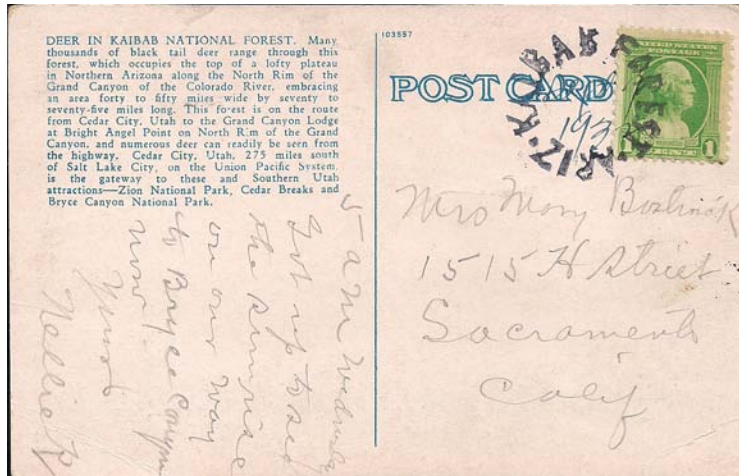 DEER IN KAIBAB NATIONAL FOREST. Many
thousands of black tail deer range through this
forest, which occupies the top of a lofty plateau
in Northern Arizona along the North Rim of the
Grand Canyon of the Colorado River, embracing
an area forty to fifty miles wide by seventy to
seventy-five miles long. This forest is on the route
from Cedar City, Utah to the Grand Canyon Lodge
at Bright Angel Point on North Rim of the Grand
Canyon, and numerous deer can readily be seen from
the highway. Cedar City, Utah, 275 miles south
of Salt Lake City, on the Union Pacific System,
is the gateway to these and Southern Utah
attractions—Zion National Park, Cedar Breaks and
Bryce Canyon National Park.
5 a m Wednesday
Got up to see
the sunrise
on our way
to Bryce Canyon
now.
Yours
Nellie K
103557
POST CARD
KAIBAB FOREST ARIZ.
UNITED STATES
POSTAGE
1 1
Mrs Mary
1515 H Street
Sacramento
Calif